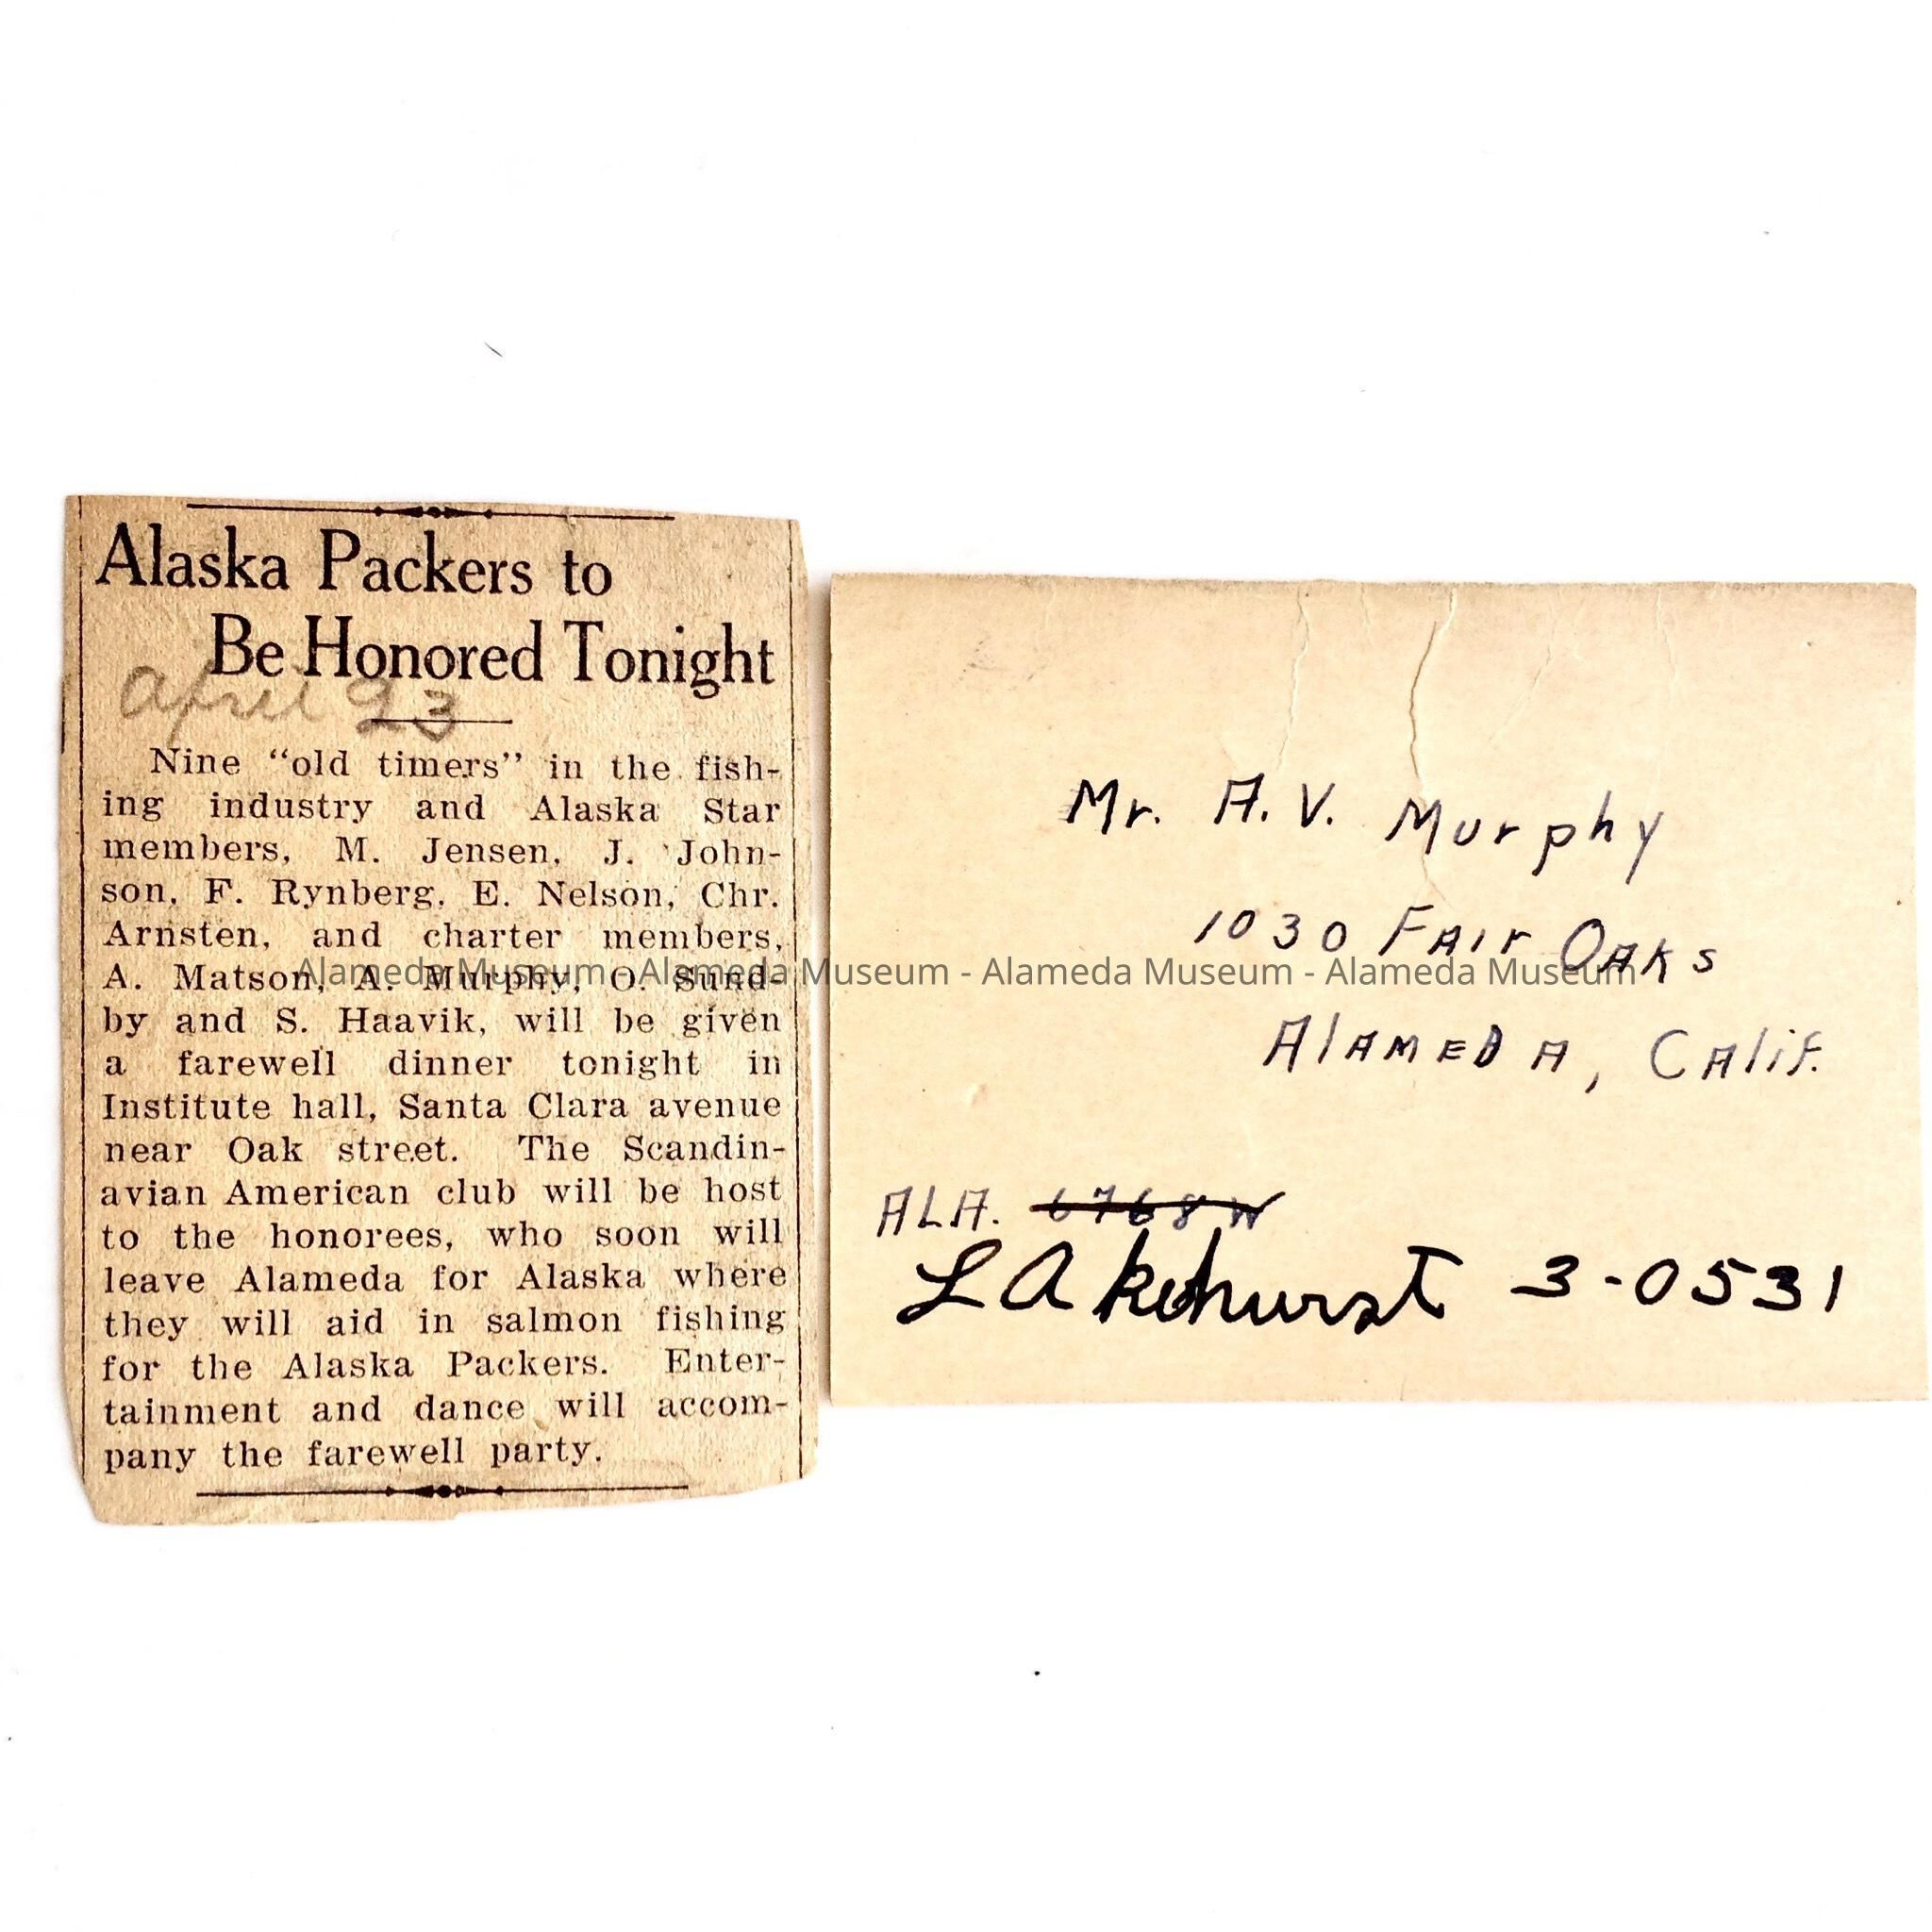 Alaska Packers to
Be Honored Tonight
April 23
Nine “old timers” in the fish-
ing industry and Alaska Star
members, M. Jensen, J. John-
son, F. Rynberg, E. Nelson, Chr.
Arnsten, and charter members,
A. Matson, A. Murphy, O. Sund-
by and S. Haavik, will be given
a farewell dinner tonight in
Institute hall, Santa Clara avenue
near Oak street. The Scandin-
avian American club will be host
to the honorees, who soon will
leave Alameda for Alaska where
they will aid in salmon fishing
for the Alaska Packers. Enter-
tainment and dance will accom-
pany the farewell party.
Mr. A. V. Murphy
1030 FAir OAKs
AlAMEDA, CAlif.
ALA. 6768W
LAkehurst 3-0531
Alameda Museum - Alameda Museum - Alameda Museum - Alameda Museum